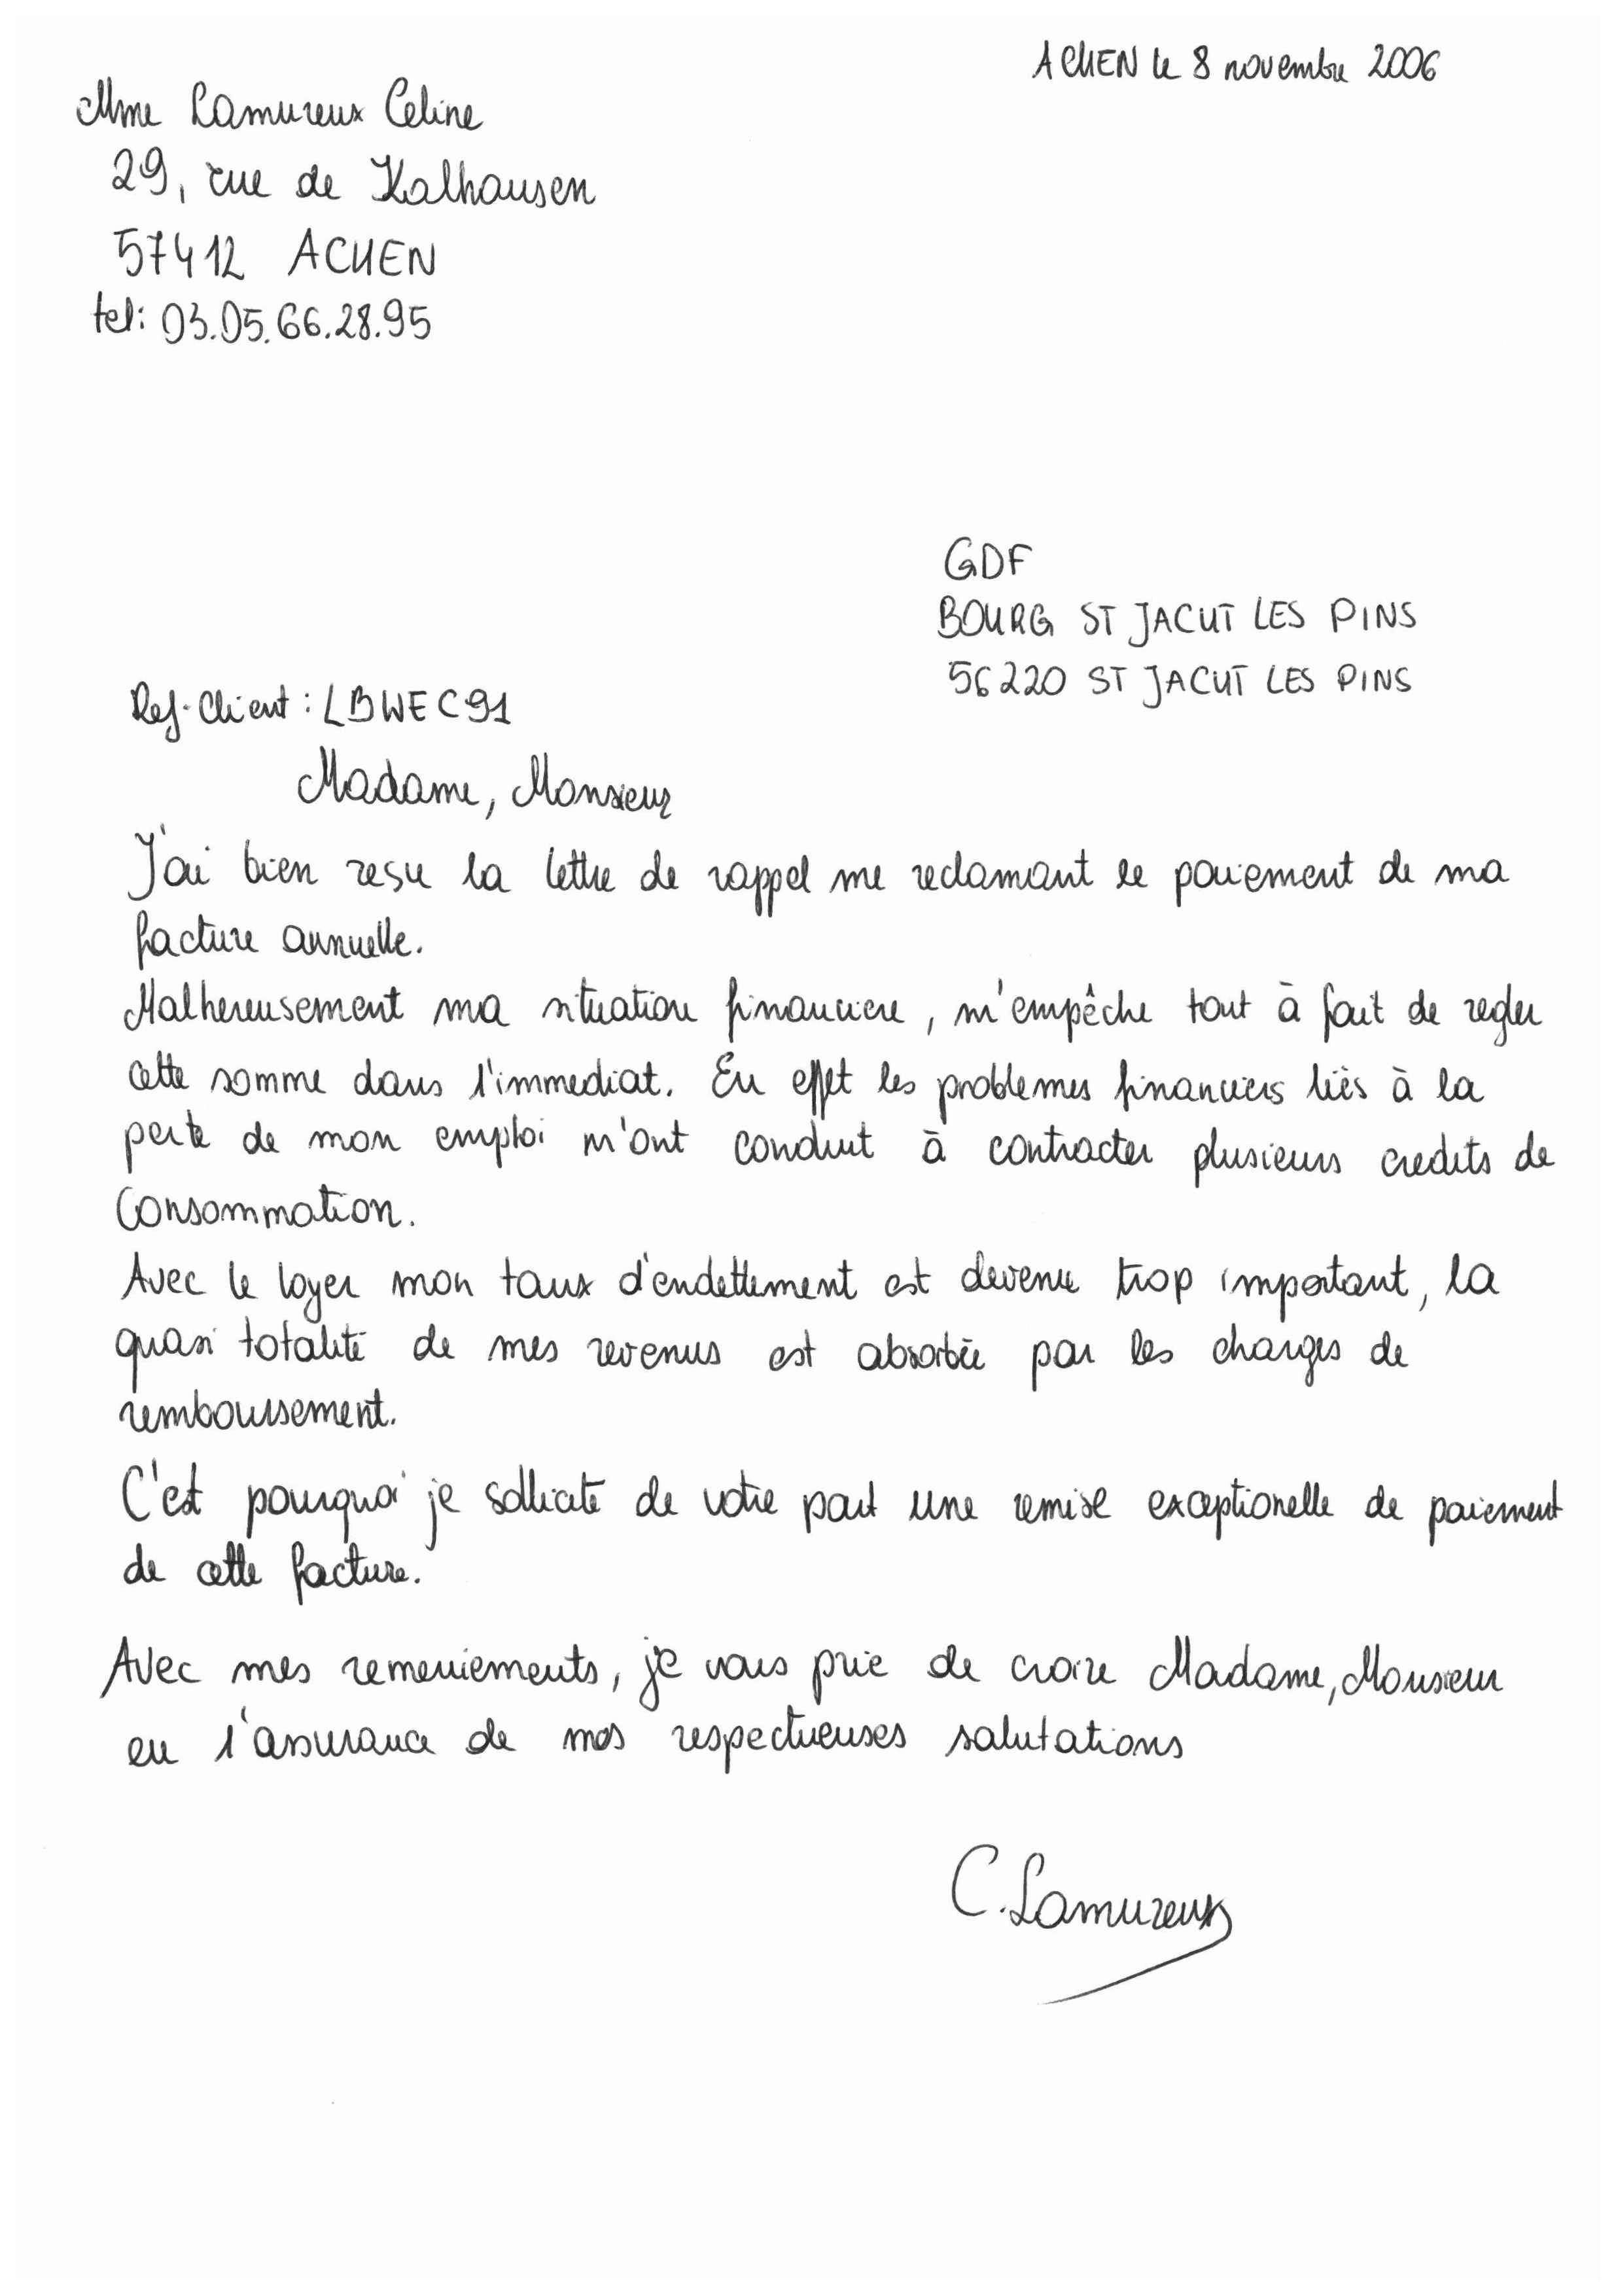 ACHEN le 8 novembre 2006
Mme Lamureux Celine
29, rue de Kalhausen
57412 ACHEN
tel: 03.05.66.28.95
GDF
BOURG ST JACUT LES PINS
56220 ST JACUT LES PINS
Ref-Client : LBWEC91
Madame, Monsieur
J'ai bien resu la lettre de rappel me reclamant le paiement de ma
facture annuelle.
Malhereusement ma situation financiere, m'empêche tout à fait de regler
cette somme dans l'immediat. En effet les problemes financiers liés à la
perte de mon emploi m'ont conduit à contracter plusieurs credits de
consommation.
Avec le loyer mon taux d'endettement est devenu trop important, la
quasi totalité de mes revenus est absorbée par les charges de
remboursement.
C'est pourquoi je sollicite de votre part une remise exceptionelle de paiement
de cette facture.
Avec mes remerciements, je vous prie de croire Madame, Monsieur
en l'assurance de mes respectueuses salutations
C. Lamureux